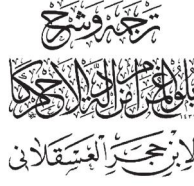 ترجمه وشرح
بلوغ المرام من أدلة الأحكام
لابن حجر العسقلانی